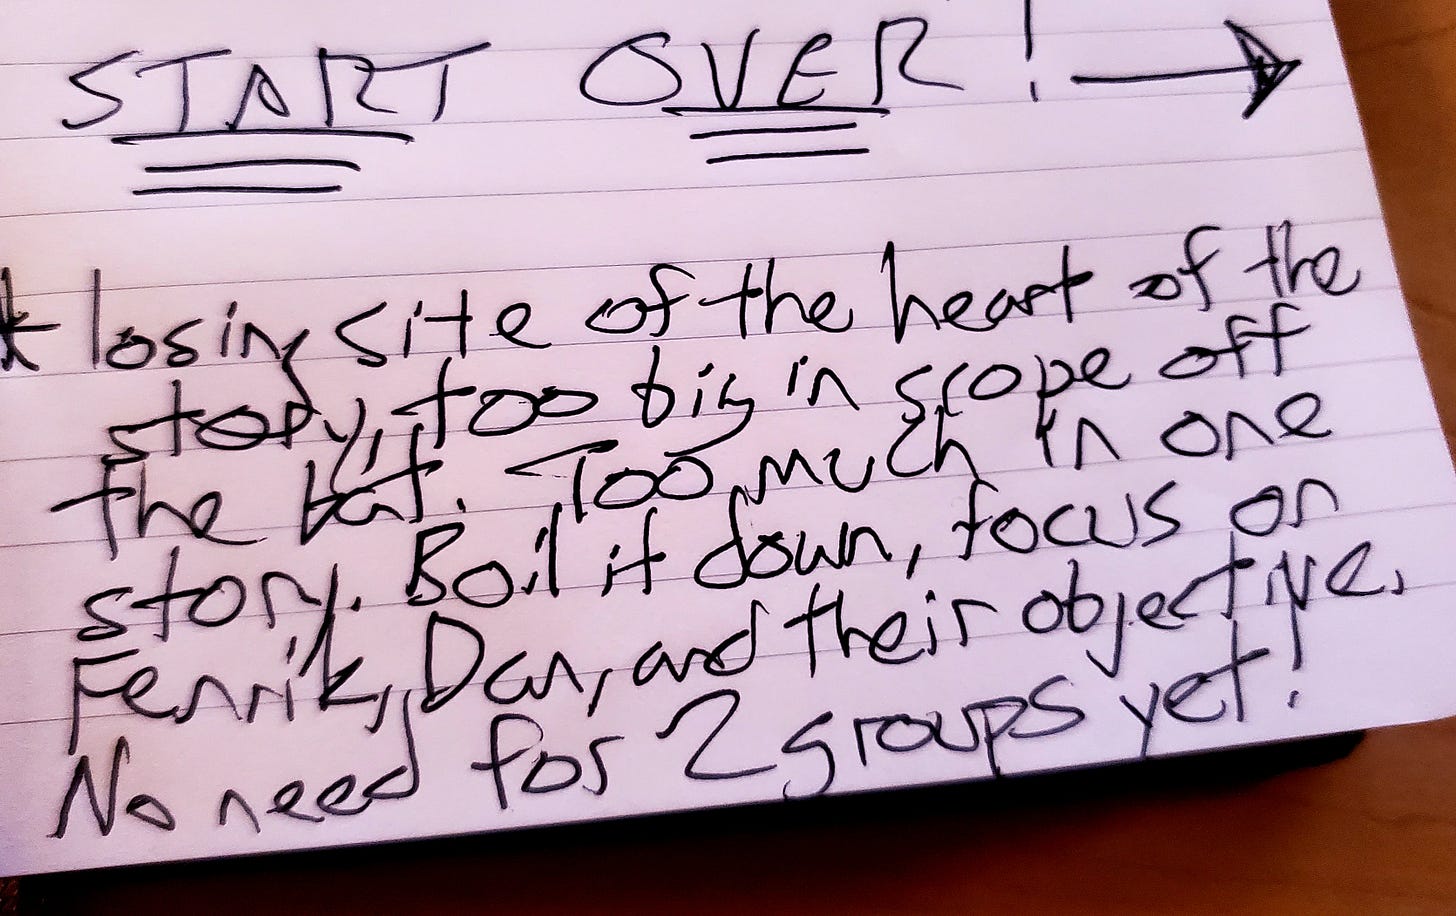 START OVER! →
* losing site of the heart of the
story, too big in scope off
the bat. Too much in one
story. Boil it down, focus on
Fenrik, Dan, and their objective.
No need for 2 groups yet!